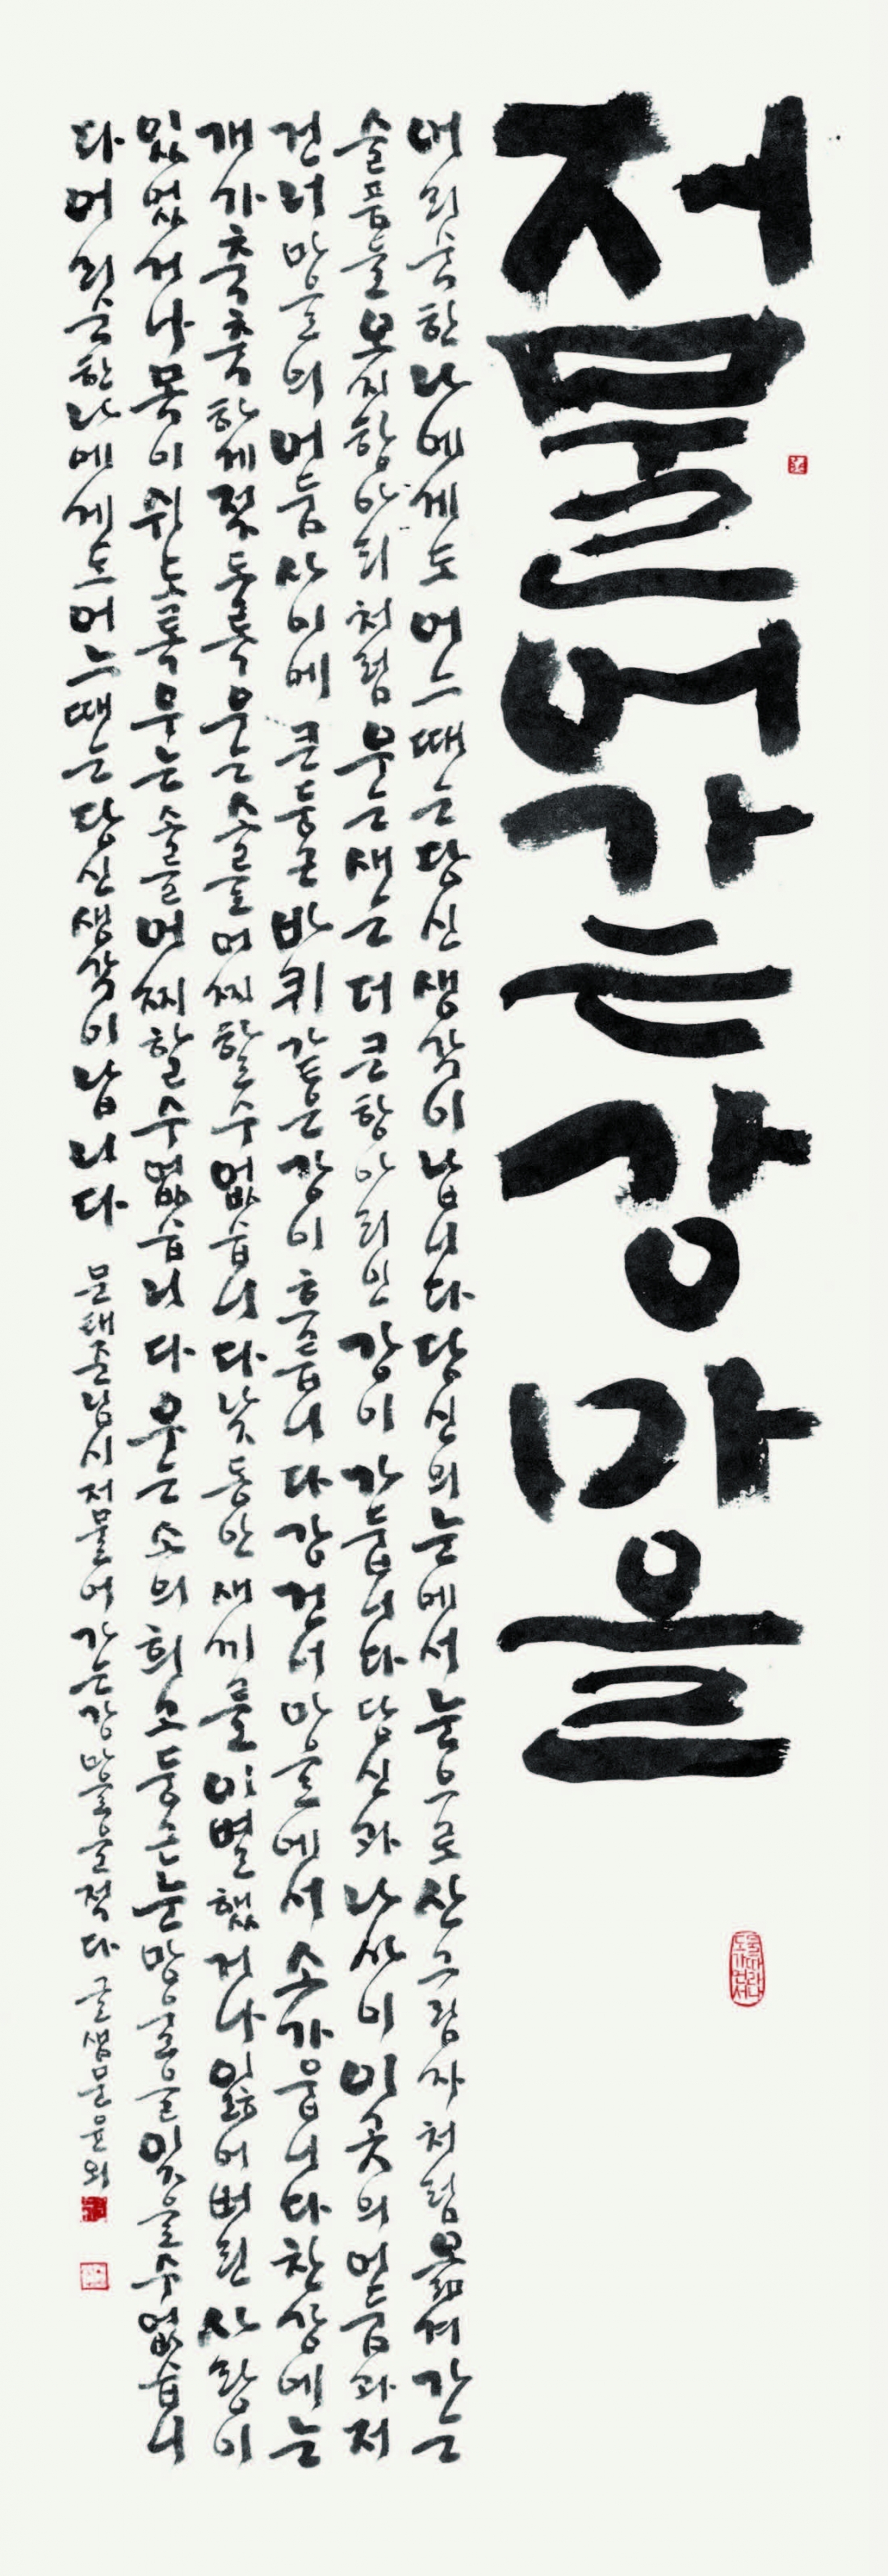 저물어가는강마을
어리숙한 나에게도 어느때는 당신 생각이 납니다 당신의 눈에서 눈으로 산그림자처럼 옮겨가는
슬픔들 오지항아리처럼 우는 새는 더 큰 항아리인 강이 가둡니다 당신과 나 사이 이곳의 어둠과 저
건너 마을의 어둠 사이에 큰 둥근 바퀴 같은 강이 흐릅니다 강 건너 마을에서 소가 웁니다 찬 강에 는
개가 축축하게 젖도록 우는 소를 어찌할 수 없습니다 낮동안 새끼를 이별했거나 잃어버린 사랑이
있었거나 목이 쉬도록 우는 소를 어찌할 수 없습니다 우는 소의 희고 둥근 눈망울을 잊을 수 없습니
다 어리숙한 나에게도 어느때는 당신 생각이 납니다 문태준님 시 저물어가는 강마을을 적다 글샘